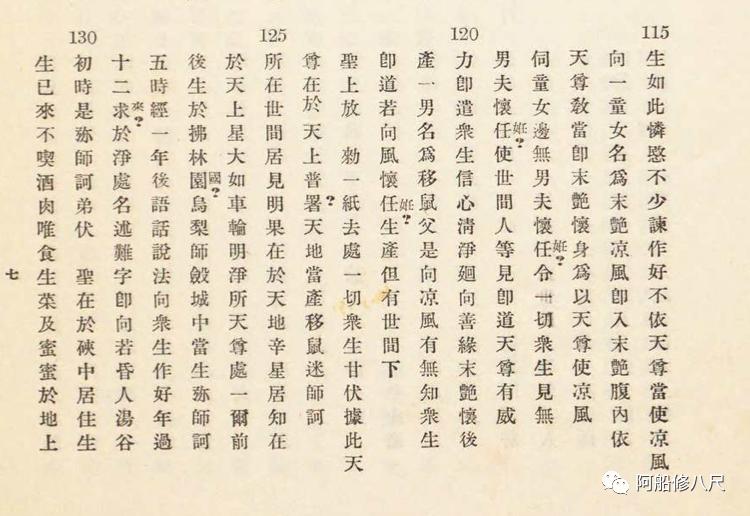 115
生如此憐愍不少諫作好不依天尊當使凉風
向一童女名爲末艶凉風卽入末艶腹內依
天尊敎當卽末艶懷身爲以天尊使凉風
伺童女邊無男夫懷任令一切衆生見無
妊?
男夫懷任使世間人等見卽道天尊有威
妊?
120
力卽遣衆生信心淸淨廻向善緣末艶懷後
產一男名爲移鼠父是向凉風有無知衆生
卽道若向風懷任生產但有世間下
妊?
聖上放 勅一紙去處一切衆生甘伏據此天
尊在於天上普署天地當產移鼠迷師訶
?
125
所在世間居見明果在於天地辛星居知在
於天上星大如車輪明淨所天尊處一爾前
後生於拂林園烏梨師斂城中當生弥師訶
國?
五時經一年後語話說法向衆生作好年過
十二求於淨處名述難字卽向若昏人湯谷
來?
130
初時是弥師訶弟伏 聖在於硤中居住生
生已來不喫酒肉唯食生菜及蜜蜜於地上
七
阿船修八尺